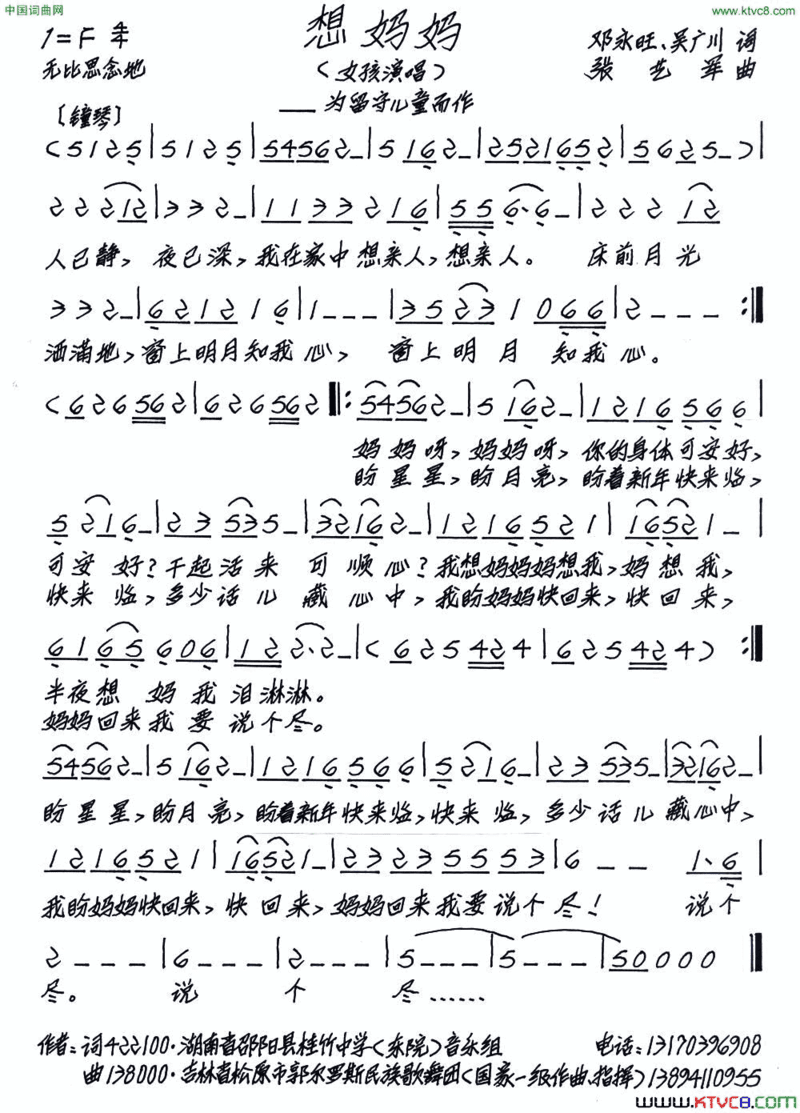 中国词曲网
www.ktvc8.com
想妈妈
1=F 4/4
邓永旺、吴广川 词
无比思念地
(女孩演唱)
张艺军 曲
——为留守儿童而作
[钟琴]
(5 1 2 5|5 1 2 5|5 4 5 6 2 -|5 1 6 2 -|2 5 2 1 6 5 2|5 6 2 5 -)|
2 2 2 1 2|3 3 2 -|1 1 3 3 2 1 6|5 5 6·6 -|2 2 2 1 2|
人已静,夜已深,我在家中想亲人,想亲人。 床前月光
3 3 2 -|6 2 1 2 1 6|1 - - -|3 5 2 3 1 0 6 6|2 - - - :‖
洒满地,窗上明月知我心, 窗上明月 知我心。
(6 2 6 5 6 2|6 2 6 5 6 2‖:5 4 5 6 2 -|5 1 6 2 -|1 2 1 6 5 6 6|
妈妈呀,妈妈呀,你的身体可安好,
盼星星,盼月亮,盼着新年快来临,
5 2 1 6 -|2 3 5 3 5 -|3 2 1 6 2 -|1 2 1 6 5 2 1|1 6 5 2 1 -|
可安好?干起活来 可顺心?我想妈妈妈想我,妈想我,
快来临,多少话儿 藏心中,我盼妈妈快回来,快回来,
6 1 6 5 6 0 6|1 2 2·2 -|(6 2 5 4 2 4|6 2 5 4 2 4) :‖
半夜想 妈我泪淋淋。
妈妈回来我要说个尽。
5 4 5 6 2 -|5 1 6 2 -|1 2 1 6 5 6 6|5 2 1 6 -|2 3 5 3 5 -|3 2 1 6 2 -|
盼星星,盼月亮,盼着新年快来临,快来临,多少话儿藏心中,
1 2 1 6 5 2 1|1 6 5 2 1 -|2 3 2 3 5 5 5 3|6 - - 1·6|
我盼妈妈快回来,快回来,妈妈回来我要说个尽! 说个
2 - - -|6 - - -|2 - - -|5 - - -|5 - - -|5 0 0 0 0‖
尽。 说 个 尽……
作者:词422100·湖南省邵阳县桂竹中学(东院)音乐组 电话:13170396908
曲138000·吉林省松原市郭尔罗斯民族歌舞团(国家一级作曲、指挥)13894110955
www.KTVC8.com